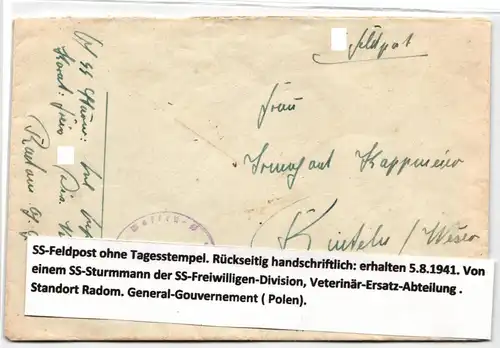 Feldpost
Frau
Irmgard Kappmeier
Rinteln / Weser
Radom
Waffen-
SS-Feldpost ohne Tagesstempel. Rückseitig handschriftlich: erhalten 5.8.1941. Von
einem SS-Sturmmann der SS-Freiwilligen-Division, Veterinär-Ersatz-Abteilung .
Standort Radom. General-Gouvernement ( Polen).